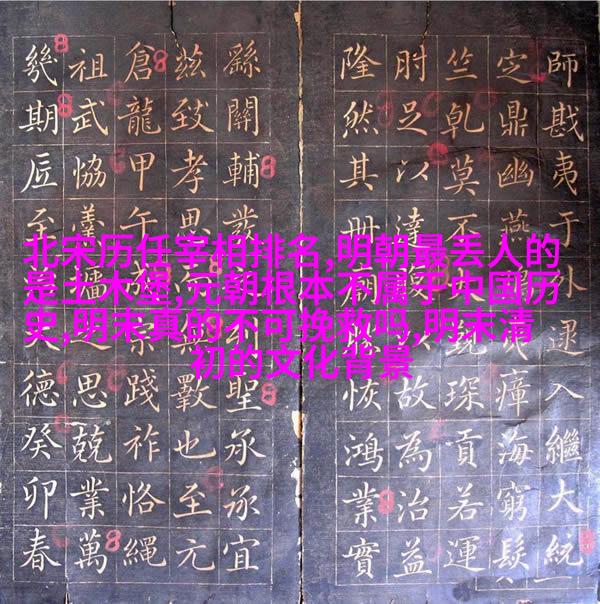 北宋历任宰相排名,明朝最丢人的
是土木堡,元朝根本不属于中国历
史,明末真的不可挽救吗,明末清
初的文化背景
師戡夷于外逮入繼大統
定鼎幽燕瘴海窮髮
竺乹莫不琛貢若運
肘足以達復故為治益
隆然其冊廟恢鴻業實
繇關輔發聖承承宜
茲致孝思無斁也至元
倉龍甲午宗踐祚恪繩
祖武協羹墻之思兢業萬
幾期匠至德癸卯春